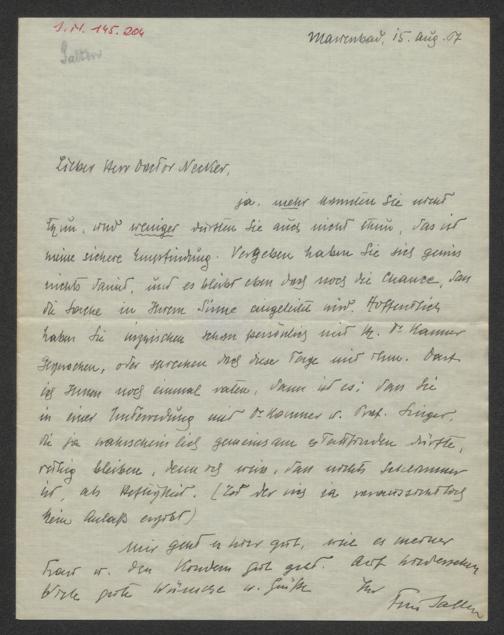 J.N. 145.204
Salten
Marienbad, 15. Aug. 07
Lieber Herr Doctor Necker,
ja, mehr konnten Sie nicht
thun, und weniger durften Sie auch nicht thun, das ist
meine sichere Empfindung. Vergeben haben Sie sich gewiss
nichts damit, und es bleibt eben doch noch die Chance, dass
die Sache in Ihrem Sinne eingeleitet wird. Hoffentlich
haben Sie inzwischen schon persönlich mit H. Dr Kanner
gesprochen, oder sprechen doch dieser Tage mit ihm. Darf
ich Ihnen noch einmal raten, dann ist es: dass Sie
in einer Unterredung mit Dr Kanner u. Prof. Singer,
die ja wahrscheinlich gemeinsam stattfinden dürfte,
ruhig bleiben, denn ich weiss, dass nichts schlimmer
ist, als Heftigkeit. (Zu der sich ja voraussichtlich
kein Anlaß ergibt)
Mir geht es hier gut, wie es meiner
Frau u. den Kindern gut geht. Auf Wiedersehen
Viele gute Wünsche u. Grüße Ihr
Felix Salten